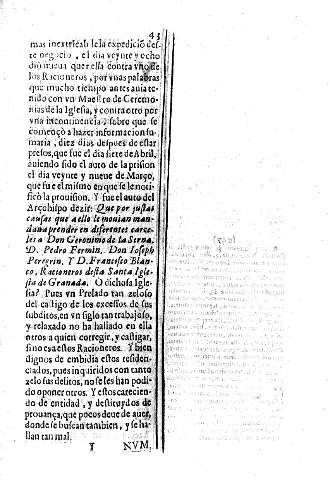 43
mas inextricable la expedició des-
te negocio, el dia veynte y ocho
dió nueua querella contra vno de
los Racioneros, por vnas palabras
que mucho tiempo antes auia te-
nido con vn Maestro de Ceremo-
nias de la Iglesia, y contra otro por
vna incontinencia, sobre que se
començò a hazer informacion su-
maria, diez dias despues de estar
presos, que fue el dia siete de Abril,
auiendo sido el auto de la prision
el dia veynte y nueue de Março,
que fue el mismo en que se le noti-
ficò la prouision. Y fue el auto del
Arçobispo dezir: Que por justas
causas que a ello le mouian man-
daua prender en diferentes carce-
les a Don Geronimo de la Serna,
D. Pedro Fermin, Don Ioseph
Peregrin, Y D. Francisco Blan-
co, Racioneros desta Santa Igle-
sia de Granada. O dichosa Igle-
sia? Pues vn Prelado tan zeloso
del castigo de los excessos de sus
subditos, en vn siglo tan trabajoso,
y relaxado no ha hallado en ella
otros a quien corregir, y castigar,
sino es a estos Racioneros. Y bien
dignos de embidia estos residen-
ciados, pues inquiridos con tanto
zelo sus delitos, no se les han podi-
do oponer otros. Y estos carecien-
do de entidad, y destituydos de
prouança, que pocos deue de auer,
donde se buscan tambien, y se ha-
llan tan mal.
Y NVM.